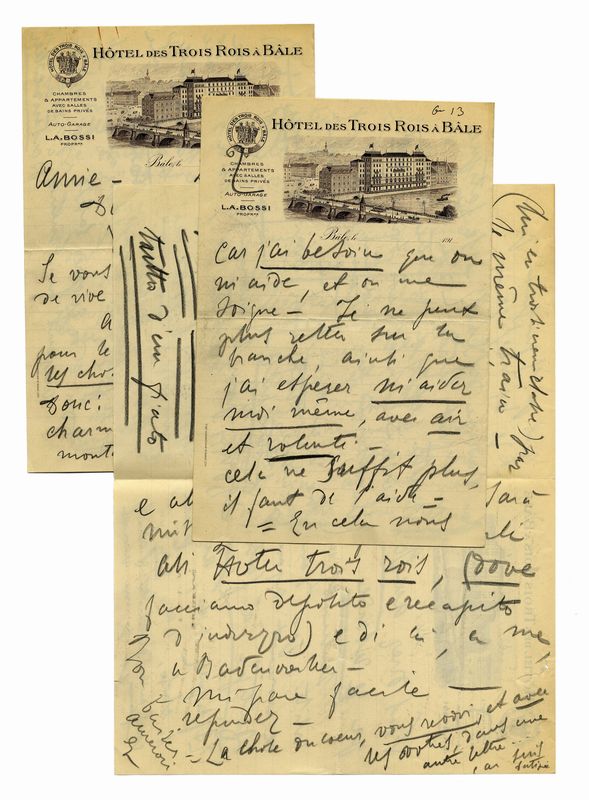 HÔTEL DES TROIS ROIS À BÂLE
HÔTEL DES TROIS ROIS À BÂLE
CHAMBRES
& APPARTEMENTS
AVEC SALLES
DE BAINS PRIVÉS
AUTO-GARAGE
L.A. BOSSI
PROPRRE
Bâle, le
Annie –
Je vous
de vive
pour le
les cho
Donc:
charm
mont
tutto d'un fiato
6-13
HÔTEL DES TROIS ROIS À BÂLE
HÔTEL DES TROIS ROIS À BÂLE
CHAMBRES
& APPARTEMENTS
AVEC SALLES
DE BAINS PRIVÉS
AUTO-GARAGE
L.A. BOSSI
PROPRRE
Bâle, le 191
car j'ai besoin que on
m'aide, et on me
soigne – Je ne peux
plus rester sur la
branche ainsi que
j'ai espéser m'aider
moi même, avec air
et volonté –
cela ne suffit plus,
il faut de l'aide –
= En cela nous
par
même train –
sarà
e al
all Hotel trois rois, (dove
facciamo deposito e recapito
d'indirizzo) e di li, a me,
a Badenweiler –
mi pare facile –
– La chose du coeur, vous revoir et avec
les votres, dans une
autre lettre